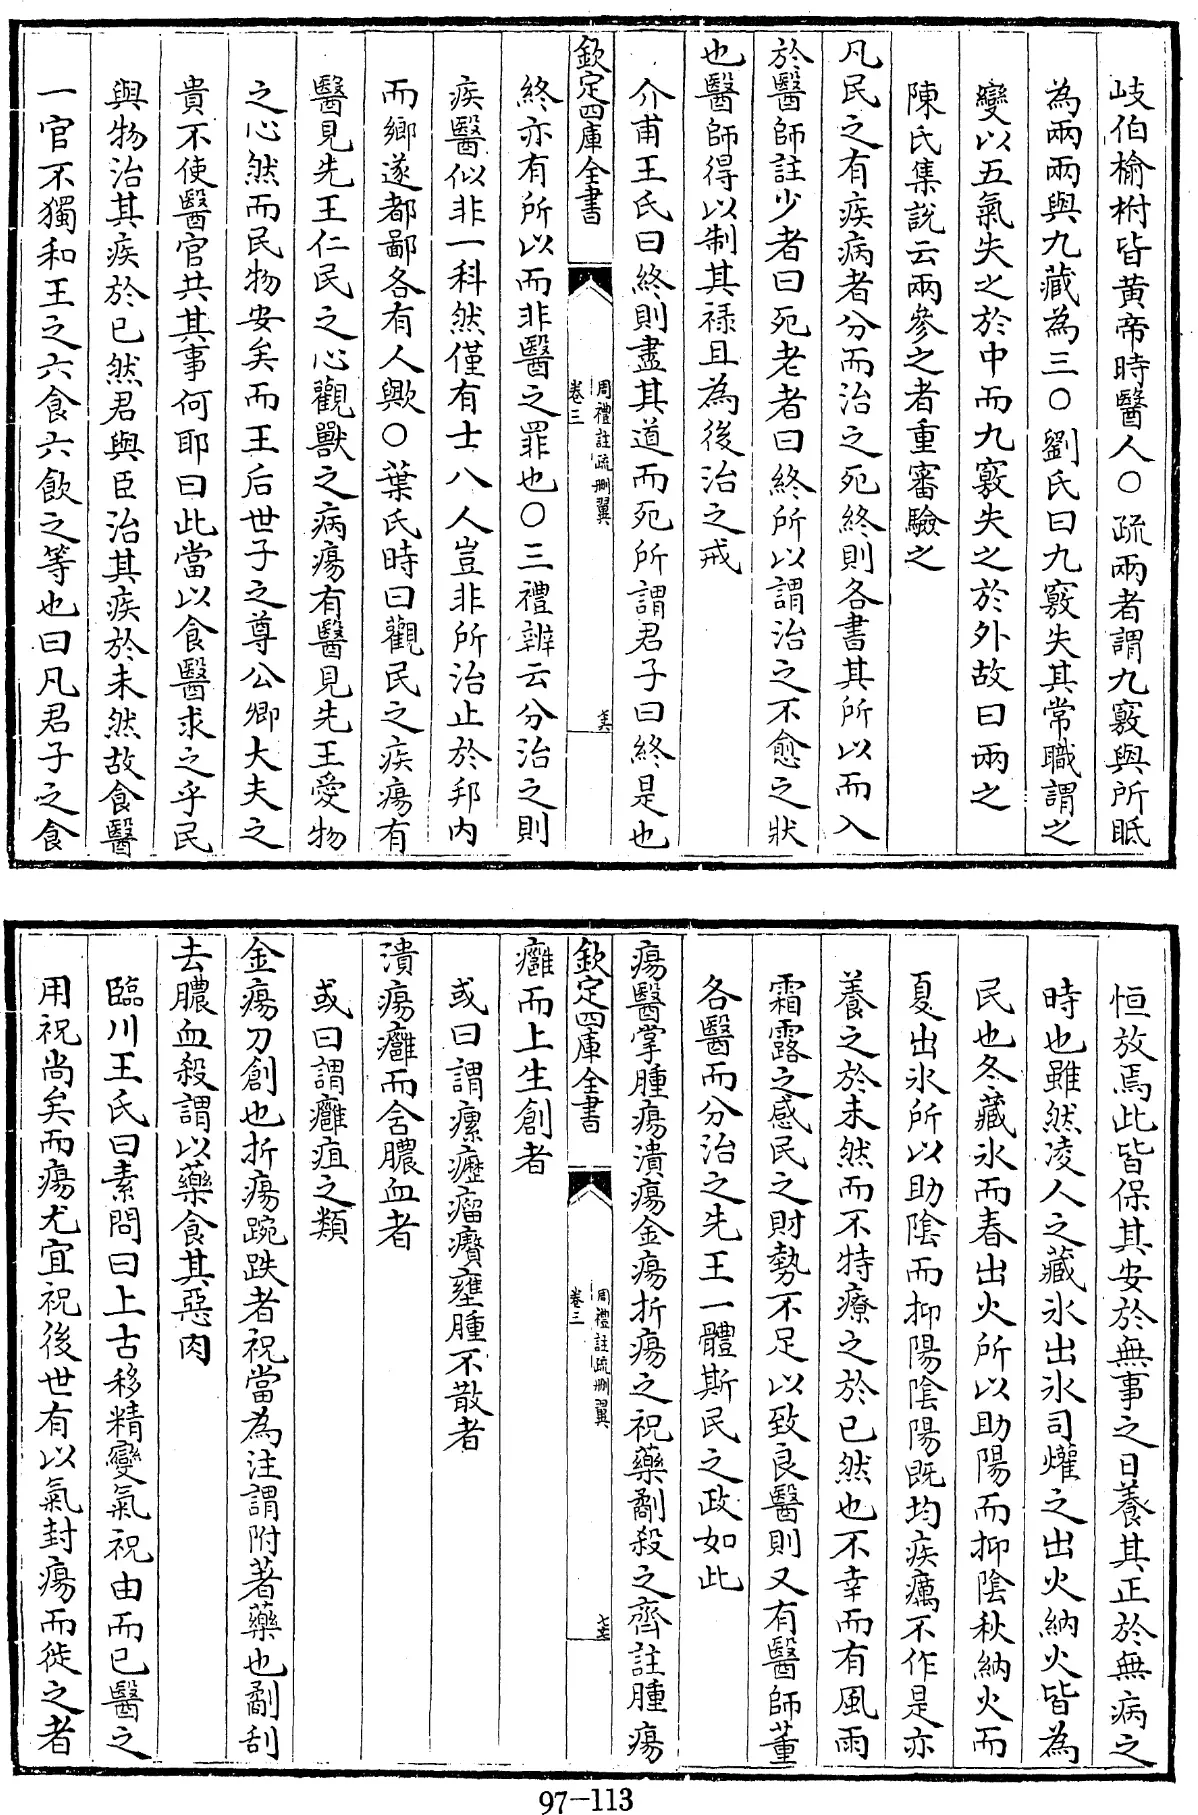 岐伯榆柎皆黄帝時醫人○疏兩者謂九竅與所眡
為兩兩與九藏為三○劉氏曰九竅失其常職謂之
變以五氣失之於中而九竅失之於外故曰兩之
陳氏集說云兩參之者重審驗之
凡民之有疾病者分而治之死終則各書其所以而入
於醫師註少者曰死老者曰終所以謂治之不愈之狀
也醫師得以制其祿且為後治之戒
介甫王氏曰終則盡其道而死所謂君子曰終是也
欽定四庫全書
周禮註疏刪翼
卷三
終亦有所以而非醫之罪也○三禮辨云分治之則
疾醫似非一科然僅有士八人豈非所治止於邦内
而鄉遂都鄙各有人歟○葉氏時曰觀民之疾瘍有
醫見先王仁民之心觀獸之病瘍有醫見先王愛物
之心然而民物安矣而王后世子之尊公卿大夫之
貴不使醫官共其事何耶曰此當以食醫求之乎民
與物治其疾於已然君與臣治其疾於未然故食醫
一官不獨和王之六食六飲之等也曰凡君子之食
恒放焉此皆保其安於無事之日養其正於無病之
時也雖然凌人之藏氷出氷司爟之出火納火皆為
民也冬藏氷而春出火所以助陽而抑陰秋納火而
夏出氷所以助陰而抑陽陰陽既均疾癘不作是亦
養之於未然而不特療之於已然也不幸而有風雨
霜露之感民之財勢不足以致良醫則又有醫師董
各醫而分治之先王一體斯民之政如此
瘍醫掌腫瘍潰瘍金瘍折瘍之祝藥劀殺之齊註腫瘍
欽定四庫全書
周禮註疏刪翼
卷三
癰而上生創者
或曰謂瘰癧瘤癭壅腫不散者
潰瘍癰而含膿血者
或曰謂癰疽之類
金瘍刀創也折瘍踠跌者祝當為注謂附著藥也劀刮
去膿血殺謂以藥食其惡肉
臨川王氏曰素問曰上古移精變氣祝由而已醫之
用祝尚矣而瘍尤宜祝後世有以氣封瘍而徙之者
97-113